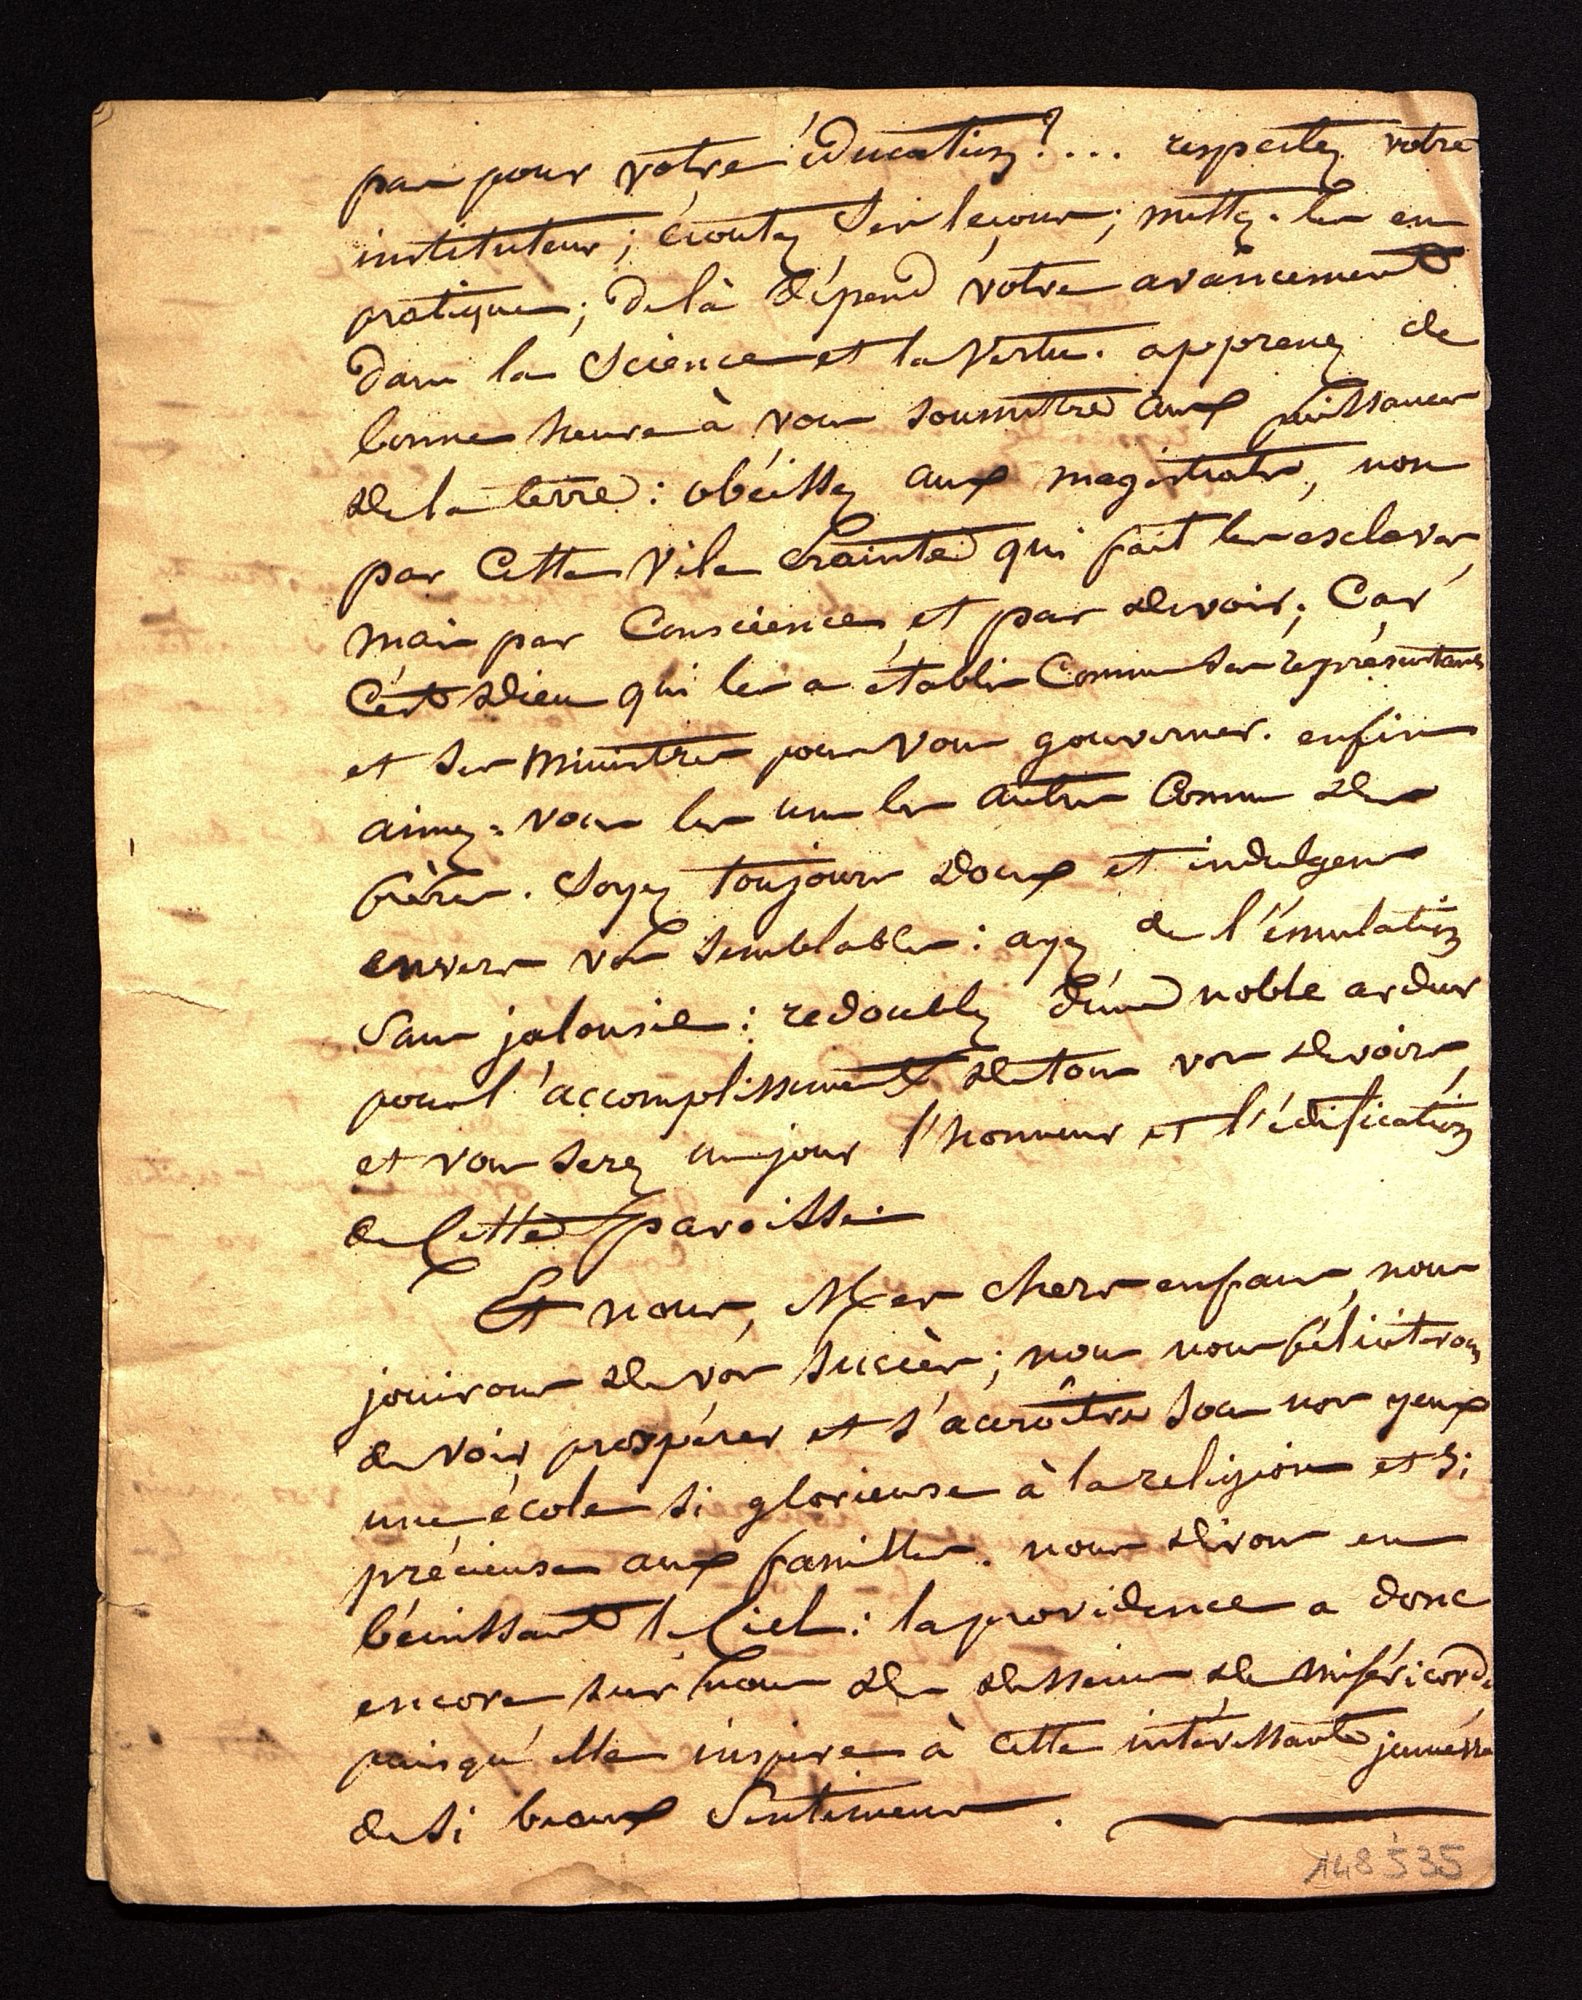 pas pour votre éducation?... respectez votre
instituteur; écoutez ses leçons; mettez-les en
pratique; de là dépend votre avancement
dans la science et la vertu. apprenez de
bonne heure à vous soumettre aux puissances
de la terre: obéissez aux magistrats, non
par cette vile crainte qui fait les esclaves,
mais par conscience et par devoir; car
c'est dieu qui les a établis comme ses représentans
et ses ministres pour vous gouverner. enfin
aimez-vous les uns les autres comme des
frères. soyez toujours doux et indulgens
envers vos semblables: ayez de l'émulation
sans jalousie: redoublez d'une noble ardeur
pour l'accomplissement de tous vos devoirs,
et vous serez un jour l'honneur et l'édification
de cette paroisse.
Et nous, Mes chers enfans, nous
jouirons de vos succès; nous nous féliciterons
de voir prospérer et s'accroître sous nos yeux
une école si glorieuse à la religion et si
précieuse aux familles. nous dirons en
bénissant le Ciel: la providence a donc
encore sur nous des desseins de miséricorde
puisqu'elle inspire à cette intéressante jeunesse
de si beaux sentimens.
148535